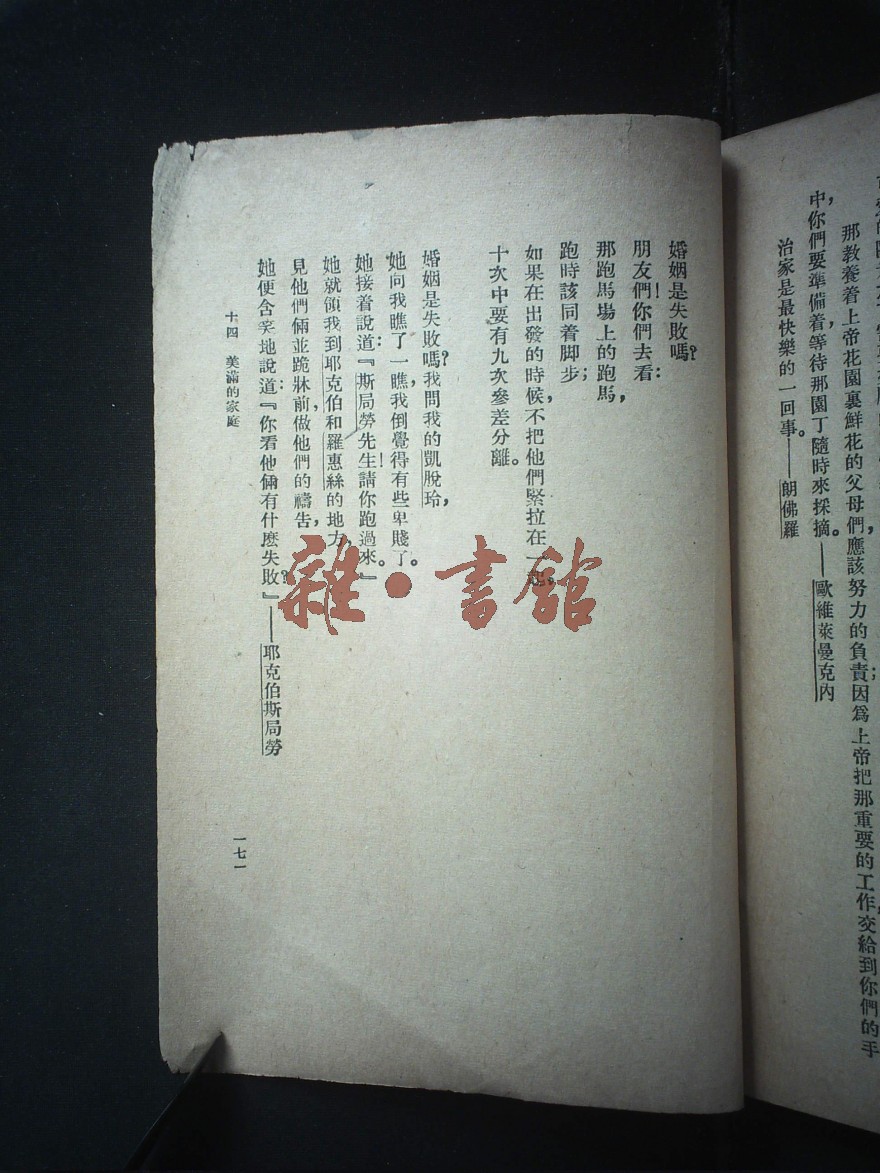 那教養着上帝花園裏鮮花的父母們應該努力的負責；因爲上帝把那重要的工作交給到你們的手
中，你們要準備着，等待那園丁隨時來採摘。——歐維萊曼克內
治家是最快樂的一回事。——朗佛羅
婚姻是失敗嗎？
朋友們！你們去看：
那跑馬場上的跑馬，
跑時該同着脚步；
如果在出發的時候，不把他們緊拉在一起，
十次中要有九次參差分離。
婚姻是失敗嗎？我問我的凱脫玲，
她向我瞧了一瞧，我倒覺得有些卑賤了。
她接着說道：『斯局勞先生！請你跑過來。』
她就領我到耶克伯和羅惠絲的地方，
見他們倆並跪牀前，做他們的禱告，
她便含笑地說道：『你看他倆有什麽失敗？』——耶克伯斯局勞
十四　美滿的家庭
一七一
雜·書館